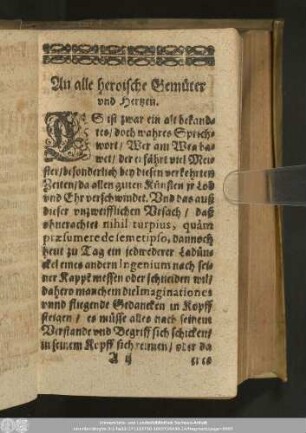 An alle heroische Gemüter
vnd Hertzen.
ES ist zwar ein alt bekand-
tes/ doch wahres Sprich-
wort/ Wer am Weg ba-
wet/ der erfährt viel Mei-
ster/ besonderlich bey diesen verkehrten
Zeiten/ da allen guten Künsten jr Lob
vnd Ehr verschwindet. Vnd das auß
dieser vnzweifflichen Vrsach/ daß
ohnerachtet nihil turpius, quàm
præsumere de semetipso, dannoch
heut zu Tag ein jedwederer Ladün-
ckel eines andern Ingenium nach sei-
ner Kappẽ messen oder schneiden wil/
dahero manchem die Imaginationes
vnnd fliegende Gedancken in Kopff
steigen/ es müsse alles nach seinem
Verstande vnd Begriff sich schicken/
in seinem Kopff sich reimen/ oder da
A ij